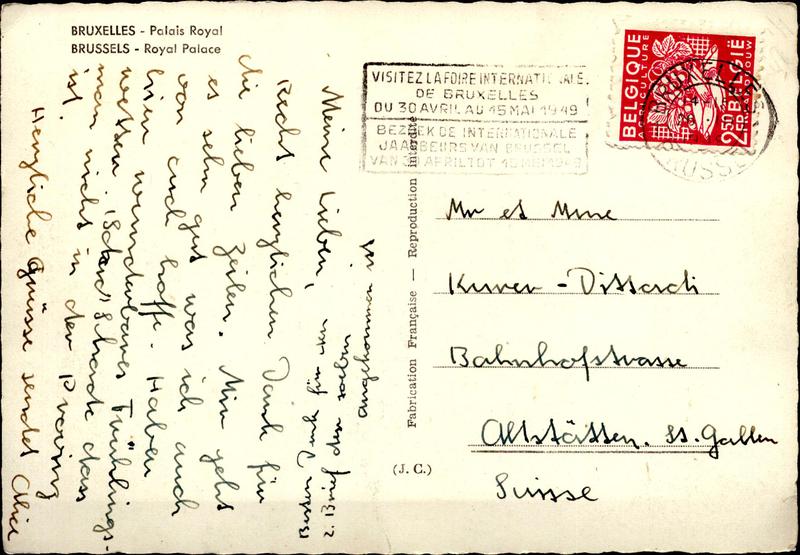 BRUXELLES - Palais Royal
BRUSSELS - Royal Palace
VISITEZ LA FOIRE INTERNATIONALE
DE BRUXELLES
DU 30 AVRIL AU 15 MAI 1949
BEZOEK DE INTERNATIONALE
JAARBEURS VAN BRUSSEL
VAN 30 APRIL TOT 15 MEI 1949
BELGIQUE
AGRICULTURE
BELGIË
LANDBOUW
2,50
FR
BRUXELLES
BRUSSEL
Meine Lieben,
Recht herzlichen Dank für
die lieben Zeilen. Mir geht
es sehr gut was ich auch
von euch hoffe. Haben
hier wunderbares Frühlings-
wetter. Schade dass
man nicht in der
ist.
Herzliche Grüsse sendet Alice
2. Brief und
angekommen
Fabrication Française — Reproduction interdite
(J. C.)
Mr et Mme
Kurer - Dittschi
Bahnhofstrasse
Altstätten. St. Gallen
Suisse